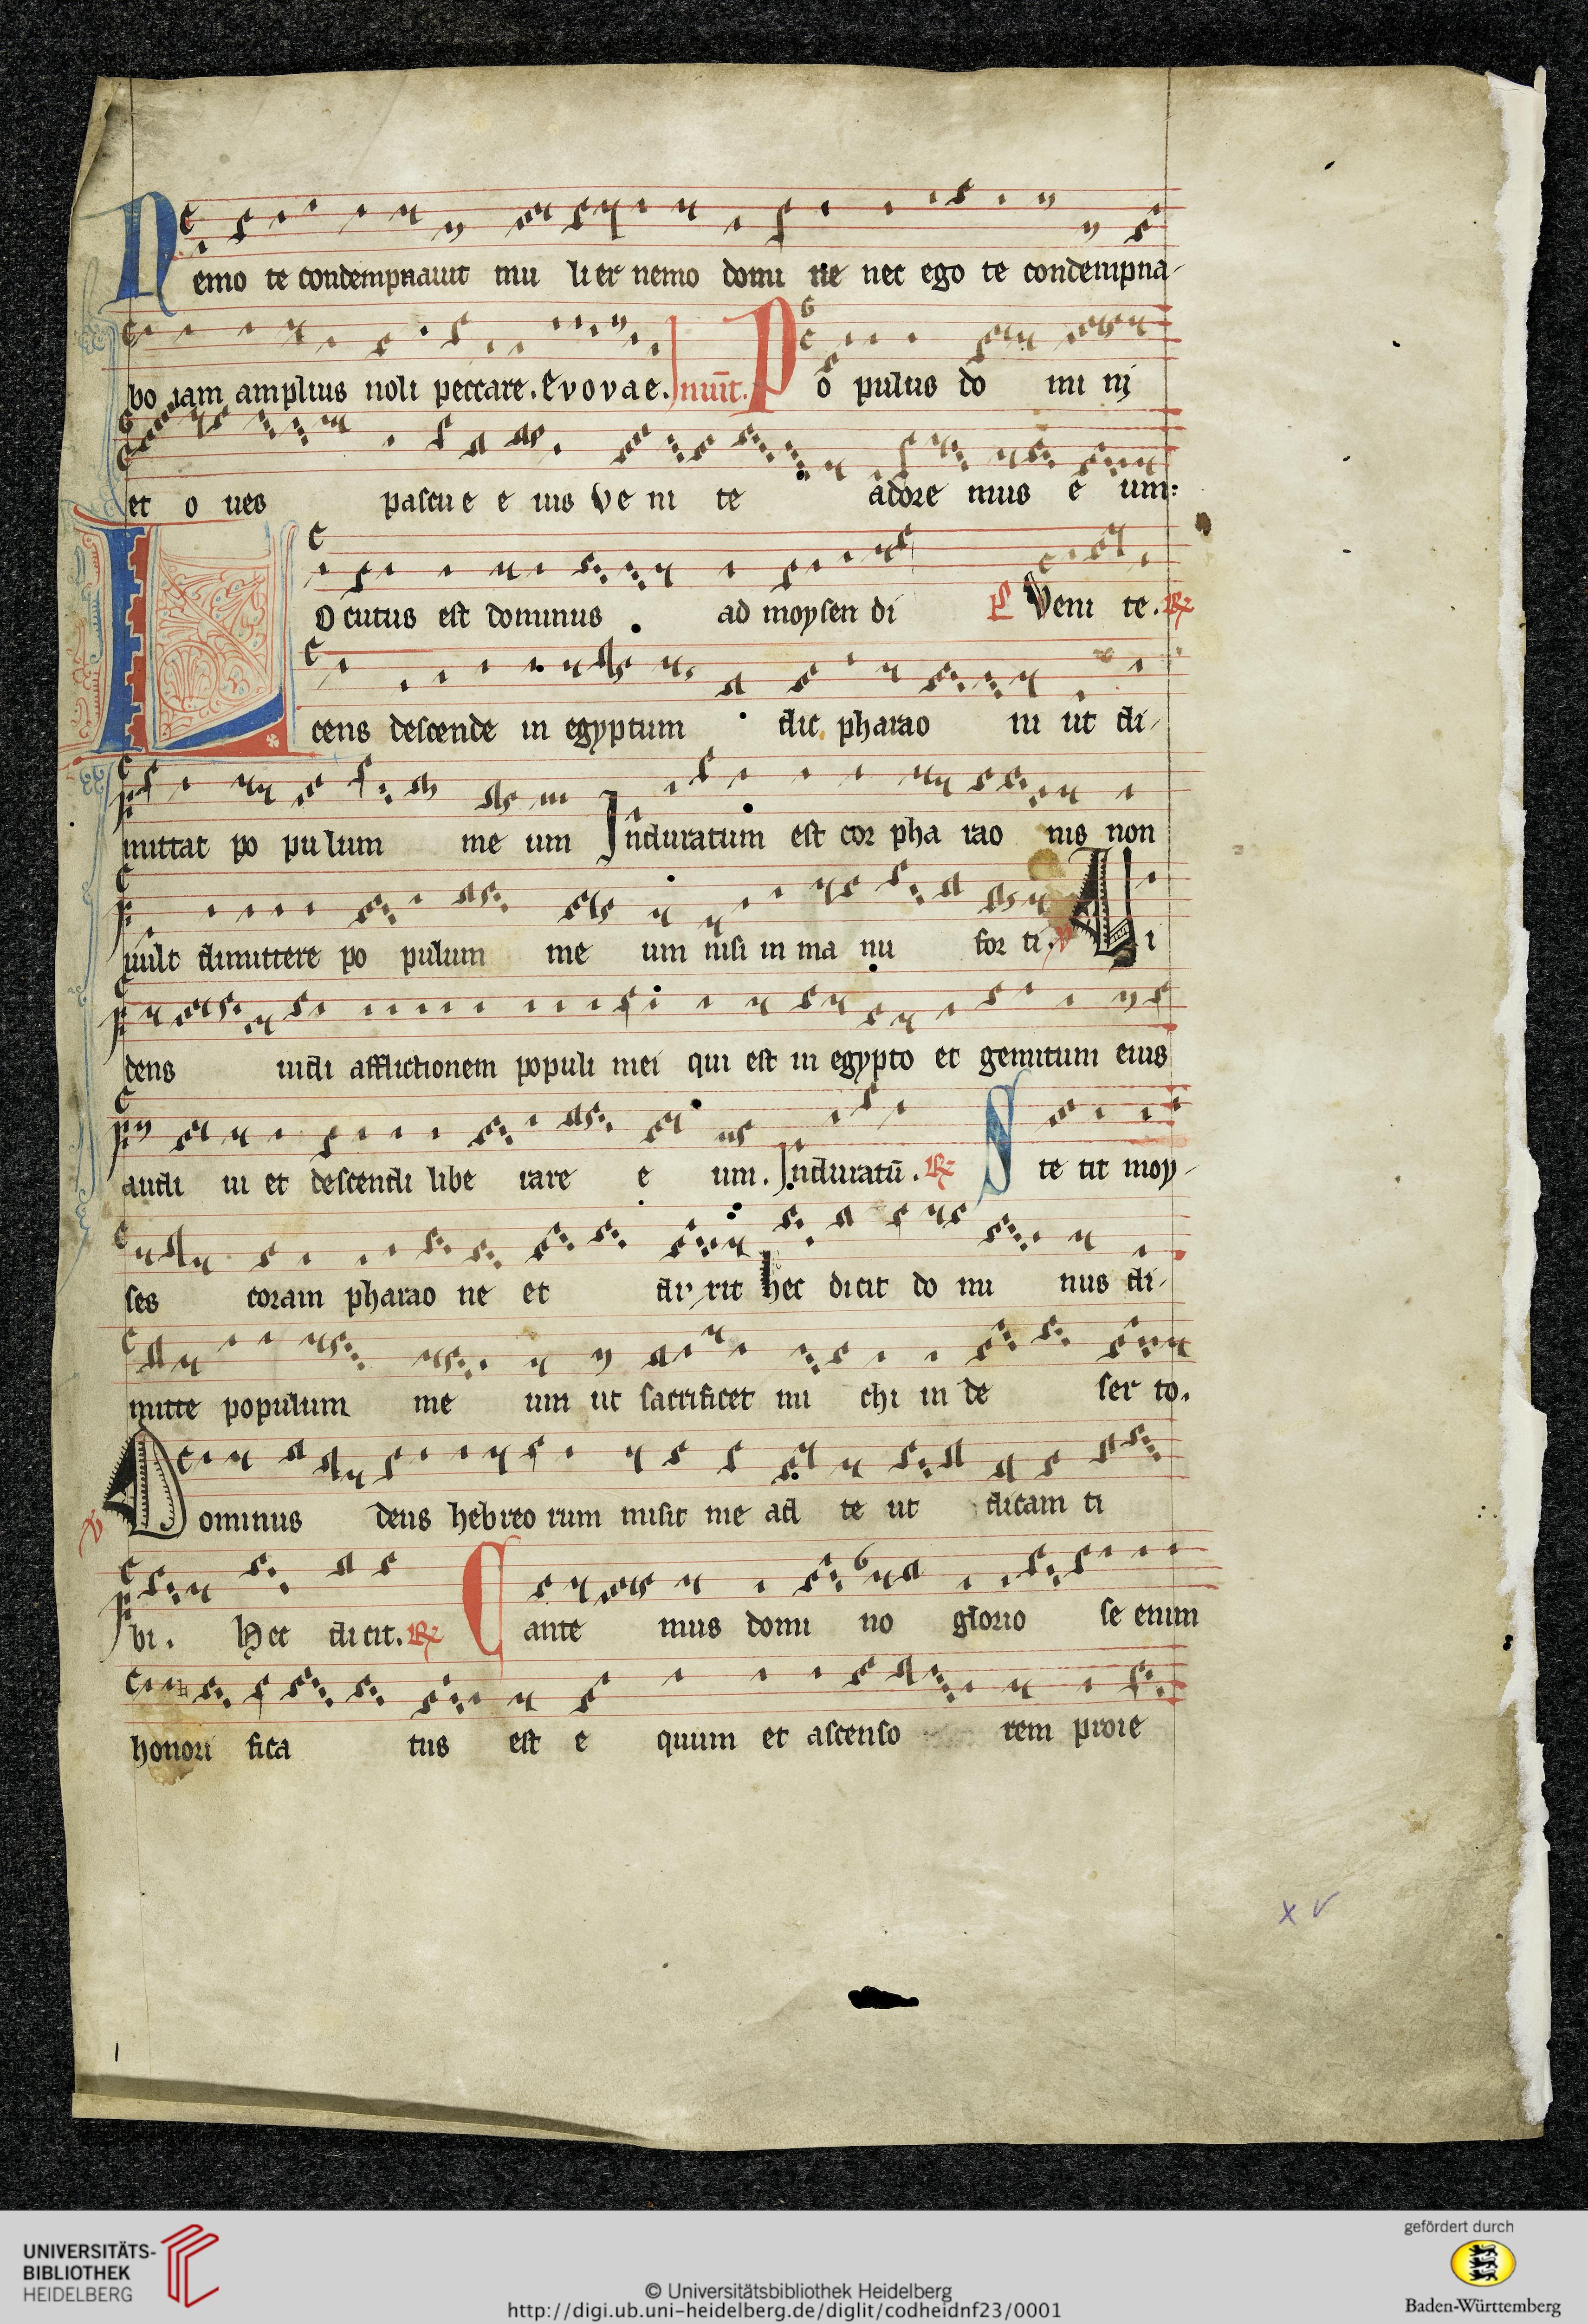 Nemo te condempnauit mu lier nemo domi ne nec ego te condempna-
bo iam amplius noli peccare. Evovae. Inuit. Po pulus do mi nj
et o ues pascu e e ius Ve ni te adore mus e um:
Locutus est dominus ad moysen di P Veni te. R
cens descende in egyptum dic pharao ni ut di-
mittat po pu lum me um Induratum est cor pha rao nis non
uult dimittere po pulum me um nisi in ma nu for ti. V Ui
dens uidi afflictionem populi mei qui est in egypto et gemitum eius
audi ui et descendi libe rare e um. Induratū. R Ste tit moy-
ses coram pharao ne et di xit hec dicit do mi nus di-
mitte populum me um ut sacrificet mi chi in de ser to.
V Dominus deus hebreo rum misit me ad te ut dicam ti
bi. Hec dicit. R Cante mus domi no glorio se enim
honori fica tus est e quum et ascenso rem proie
x v
1
UNIVERSITÄTS-
BIBLIOTHEK
HEIDELBERG
© Universitätsbibliothek Heidelberg
http://digi.ub.uni-heidelberg.de/diglit/codheidnf23/0001
gefördert durch
Baden-Württemberg